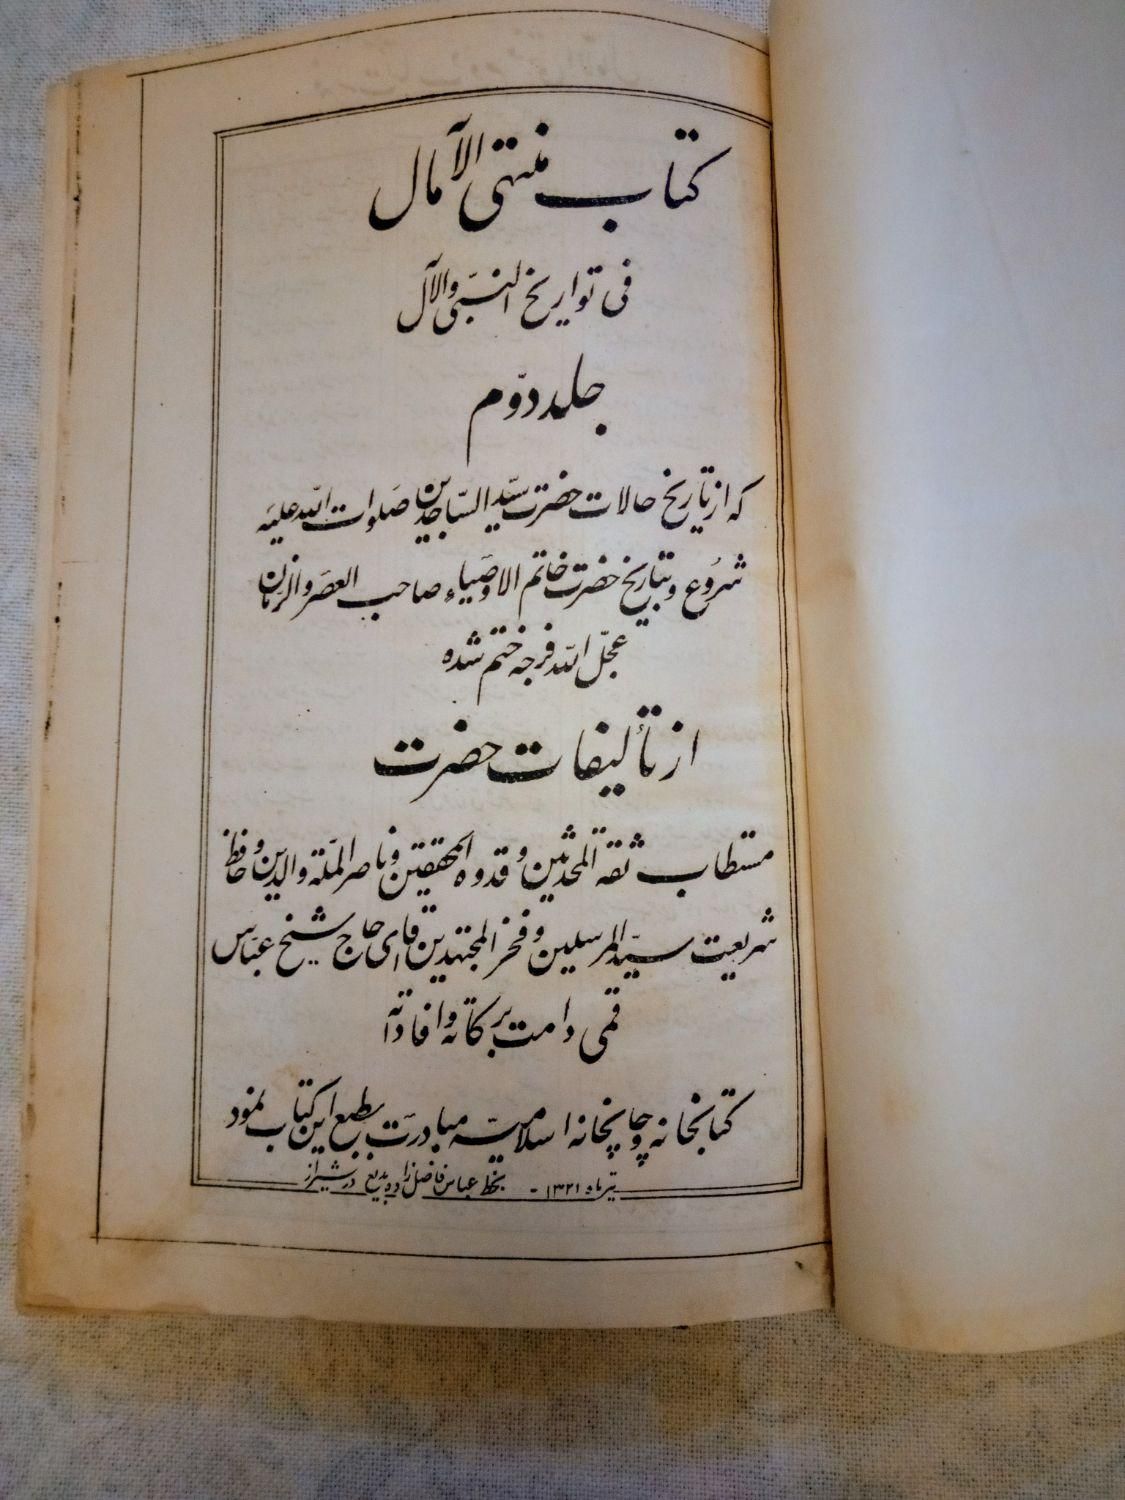 کتاب منتهی الآمال
فی تواریخ النبی والآل
جلد دوّم
که از تاریخ حالات حضرت سیّد السّاجدین صلوات الله علیه
شروع و بتاریخ حضرت خاتم الاوصیاء صاحب العصر والزمان
عجّل الله فرجه ختم شده
از تألیفات حضرت
مستطاب ثقة المحدثین و قدوه المحققین و ناصر الملّة والدین و حافظ
شریعت سیّد المرسلین و فخر المجتهدین آقای حاج شیخ عبّاس
قمی دامت برکاته و افاداته
کتابخانه و چاپخانه اسلامیه مبادرت بطبع این کتاب نمود
تیرماه ۱۳۲۱ - بخط عباس فاضل زاده بدیع در شیراز